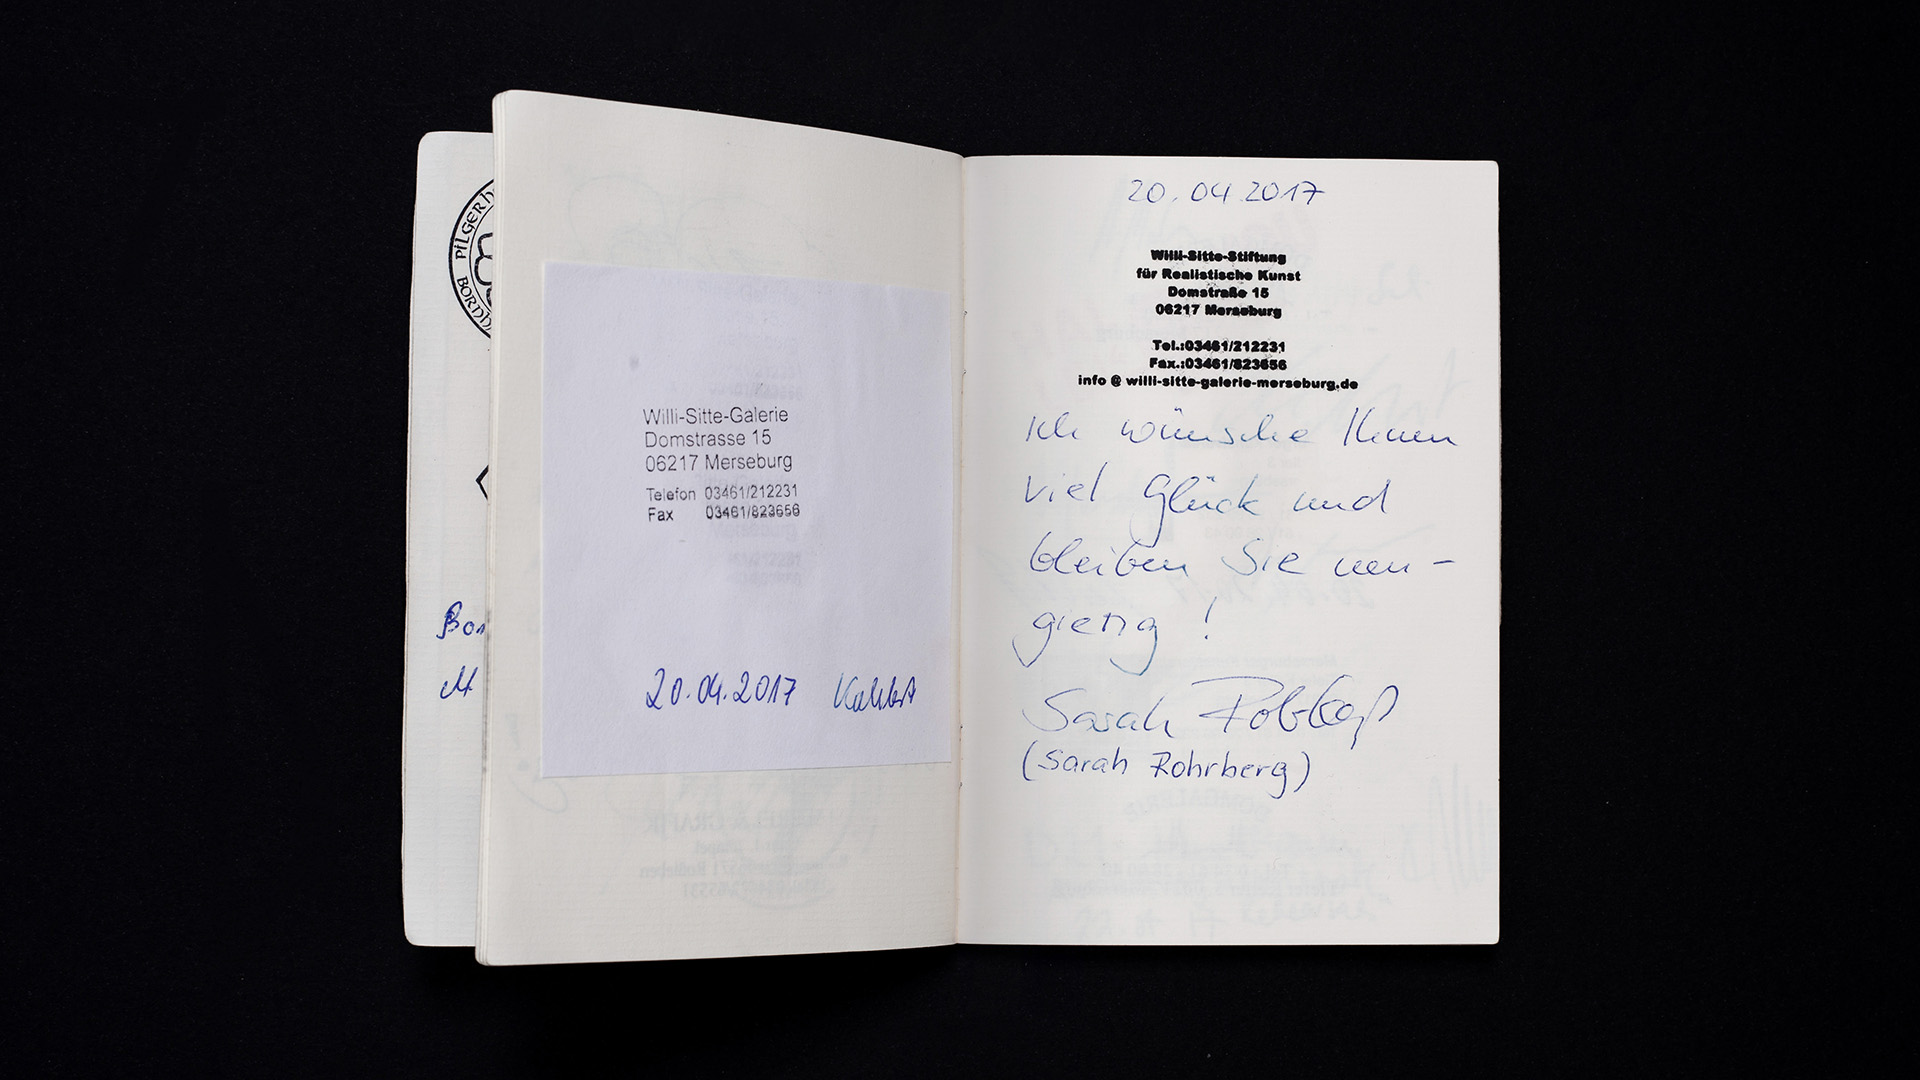 PILGERH
BORNH
Bor
M
Willi-Sitte-Galerie
Domstrasse 15
06217 Merseburg
Telefon 03461/212231
Fax 03461/823656
20.04.2017
20.04.2017
Willi-Sitte-Stiftung
für Realistische Kunst
Domstraße 15
06217 Merseburg
Tel.:03461/212231
Fax.:03461/823656
info @ willi-sitte-galerie-merseburg.de
Ich wünsche Ihnen
viel Glück und
bleiben Sie neu-
gierig !
Sarah Rohrberg
(Sarah Rohrberg)